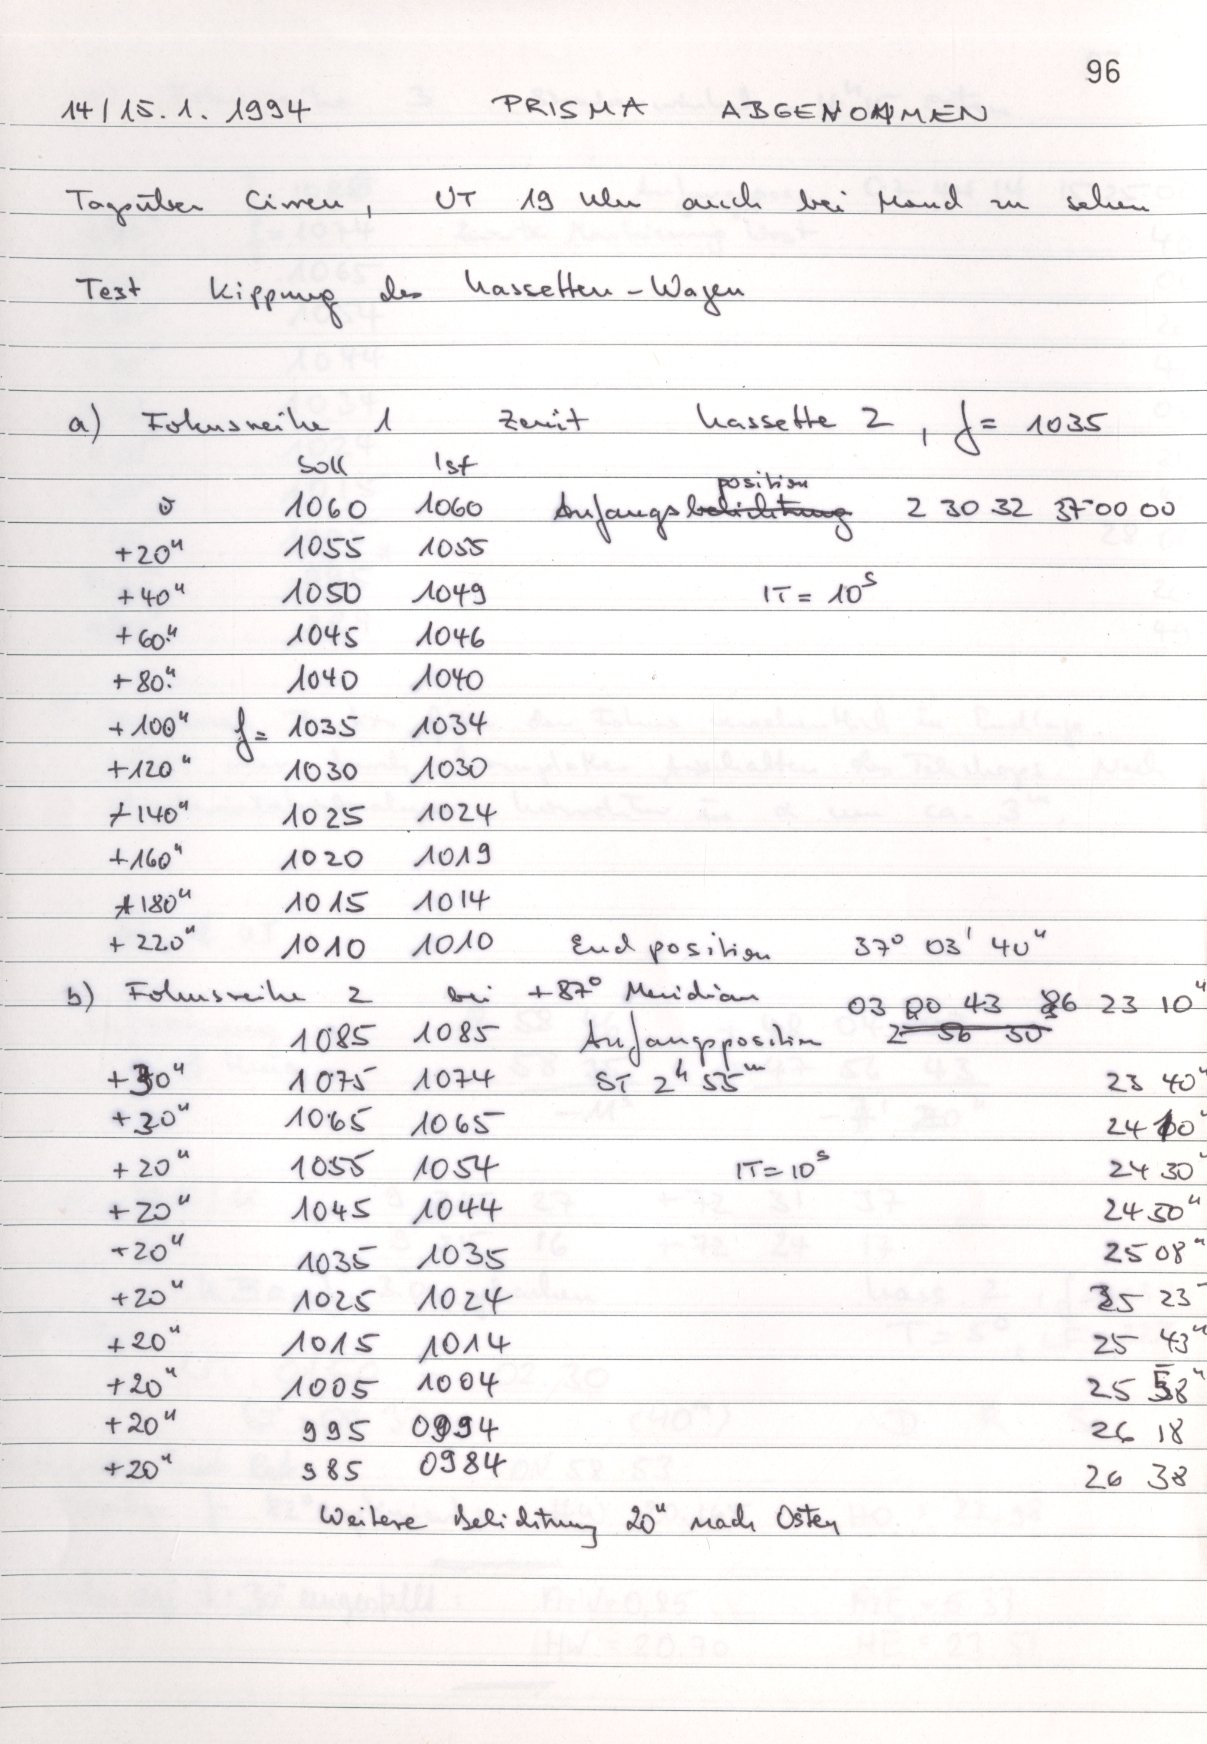 96
14/15.1.1994 PRISMA ABGENOMMEN
Tagsüber Cirren, UT 19 Uhr auch bei Mond zu sehen
Test Kippung des Kassetten-Wagen
a) Fokusreihe 1 Zenit Kassette 2, f = 1035
Soll Ist
position
0 1060 1060 Anfangsbelichtung 2 30 32 37 00 00
+20" 1055 1055
+40" 1050 1049 IT = 10s
+60" 1045 1046
+80" 1040 1040
+100" f = 1035 1034
+120" 1030 1030
+140" 1025 1024
+160" 1020 1019
+180" 1015 1014
+220" 1010 1010 Endposition 37° 03' 40"
b) Fokusreihe 2 bei +87° Meridian 03 00 43 86 23 10"
1085 1085 Anfangsposition 2 56 50
+30" 1075 1074 ST 2h 55m 23 40"
+30" 1065 1065 24 10"
+20" 1055 1054 IT = 10s 24 30"
+20" 1045 1044 24 50"
+20" 1035 1035 25 08"
+20" 1025 1024 25 23"
+20" 1015 1014 25 43"
+20" 1005 1004 25 58"
+20" 995 0994 26 18
+20" 985 0984 26 38
Weitere Belichtung 20" nach Osten